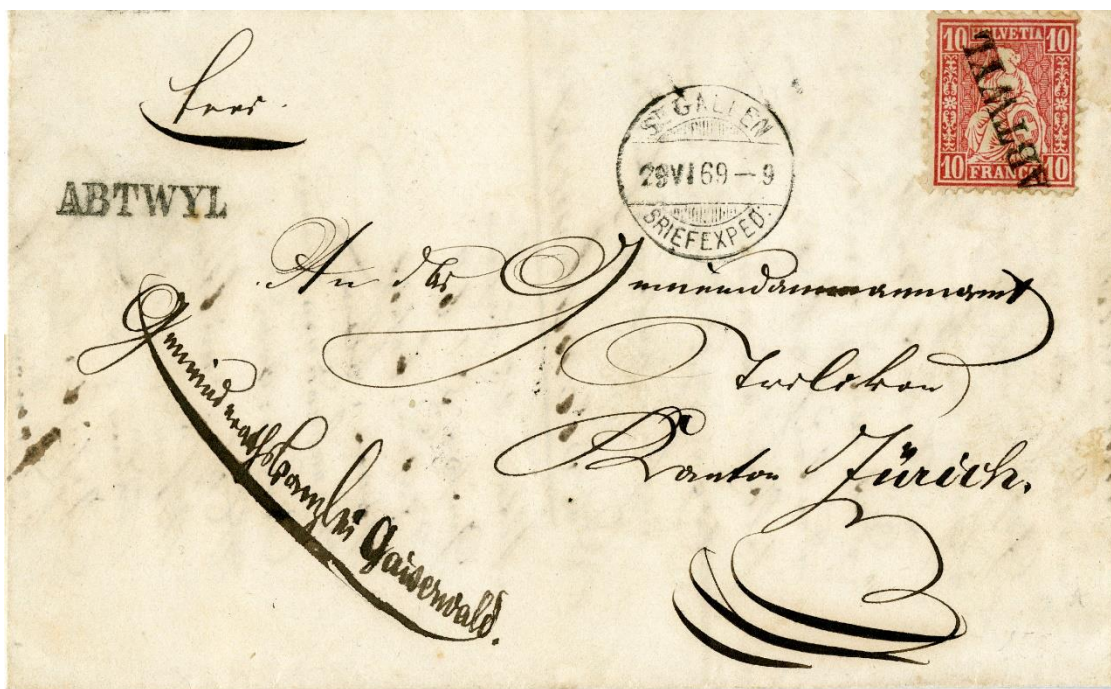 10 HELVETIA 10
10 FRANCO 10
ABTWYL
franco.
ABTWYL
St GALLEN
29 VI 69 – 9
BRIEFEXPED.
An das Gemeindammannamt
Trüllikon
Kanton Zürich.
Gemeindrathskanzlei Gaiserwald.